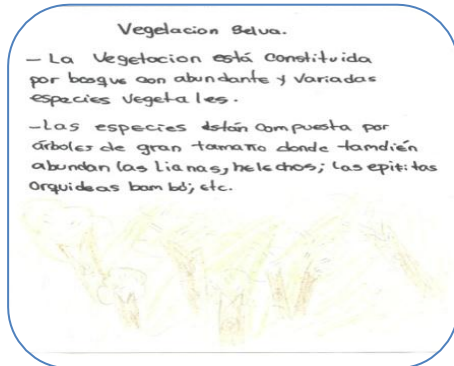 Vegelacion Selva.
- La Vegetacion está Constituida
por bosque con abundante y Variadas
especies Vegetales.
- Las especies están compuesta por
árboles de gran tamaño donde tamdién
abundan las Lianas, helechos; las epititas
Orquideas bambú; etc.